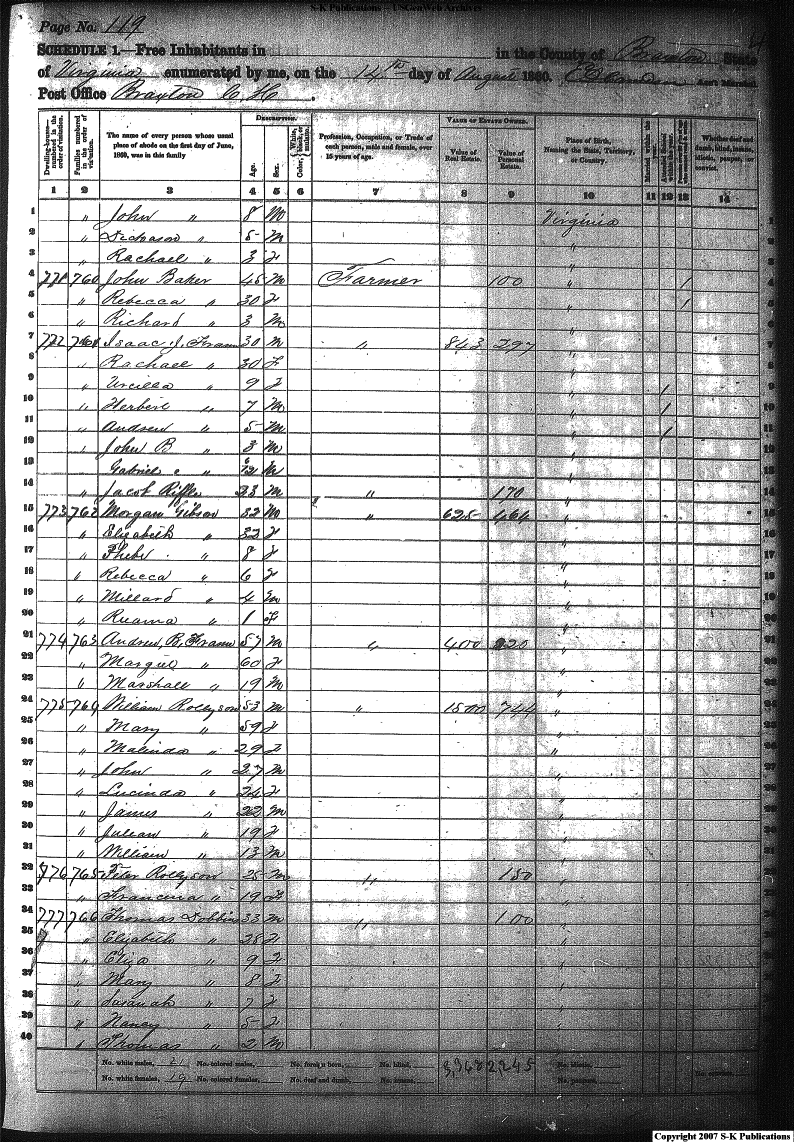 S-K Publications -- USGenWeb Archives
Page No. 119
SCHEDULE 1.—Free Inhabitants in in the County of Braxton State
of Virginia enumerated by me, on the 14th day of August 1860. Ass't Marshal
Post Office Braxton C. H.
Dwelling-houses—numbered in the order of visitation. Families numbered in the order of visitation. The name of every person whose usual place of abode on the first day of June, 1860, was in this family DESCRIPTION. Age. Sex. Color, White, black, or mulatto. Profession, Occupation, or Trade of each person, male and female, over 15 years of age. VALUE OF ESTATE OWNED. Value of Real Estate. Value of Personal Estate. Place of Birth, Naming the State, Territory, or Country. Whether deaf and dumb, blind, insane, idiotic, pauper, or convict.
1 2 3 4 5 6 7 8 9 10 11 12 13 14
1 " John " 8 M Virginia 1
2 " Dickason " 5 M "
3 " Rachael " 3 F "
4 771 760 John Baker 45 M Farmer 100 " 1 4
5 " Rebecca " 30 F " 1 5
6 " Richard " 3 M " 6
7 772 761 Isaac J. Frame 30 M " 843 297 " 7
8 " Rachael " 30 F " 8
9 " Urcilla " 9 F " 1 9
10 " Herbert " 7 M " 1 10
11 " Andrew " 5 M " 1 11
12 " John B " 3 M " 12
13 Gabriel " 6/12 M " 13
14 " Jacob Riffle 23 M " 170 " 14
15 773 762 Morgan Gibson 32 M " 625 464 " 15
16 " Elizabeth " 32 F " 16
17 " Phebe " 8 F " 17
18 " Rebecca " 6 F " 18
19 " Millard " 4 M " 19
20 " Ruama " 1 F " 20
21 774 763 Andrew B. Frame 57 M " 400 220 " 21
22 " Margie " 60 F " 22
23 " Marshall " 19 M " 23
24 775 764 William Rollyson 53 M " 1500 744 " 24
25 " Mary " 59 F " 25
26 " Malinda " 29 F " 26
27 " John " 27 M " 27
28 " Lucinda " 24 F " 28
29 " James " 22 M " 29
30 " Julian " 19 F " 30
31 " William " 13 M " 31
32 776 765 Peter Rollyson 25 M " 150 " 32
33 " Francina " 19 F " 33
34 777 766 Thomas Dobbins 33 M " 100 " 34
35 " Elizabeth " 25 F " 35
36 " Eliza " 9 F " 36
37 " Mary " 8 F " 37
38 " Susanah " 7 F " 38
39 " Nancy " 5 F " 39
40 " Thomas " 2 M " 40
No. white males, 21 No. colored males, No. foreign born, No. blind, 3,368 2,245 No. idiotic,
No. white females, 19 No. colored females, No. deaf and dumb, No. insane, No. paupers, No. convicts,
Copyright 2007 S-K Publications